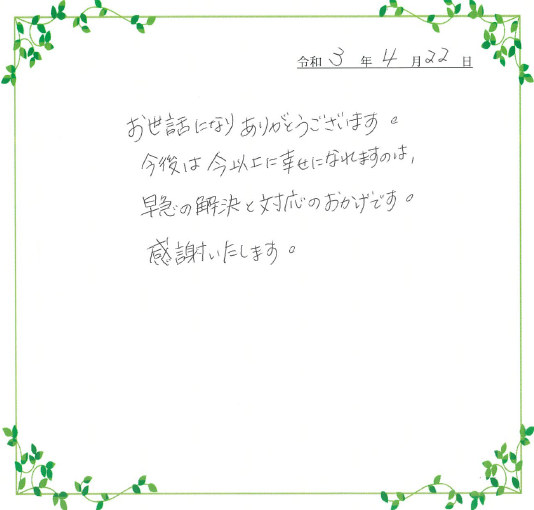 令和 3 年 4 月 22 日
お世話になりありがとうございます。
今後は今以上に幸せになれますのは、
早急の解決と対応のおかげです。
感謝いたします。